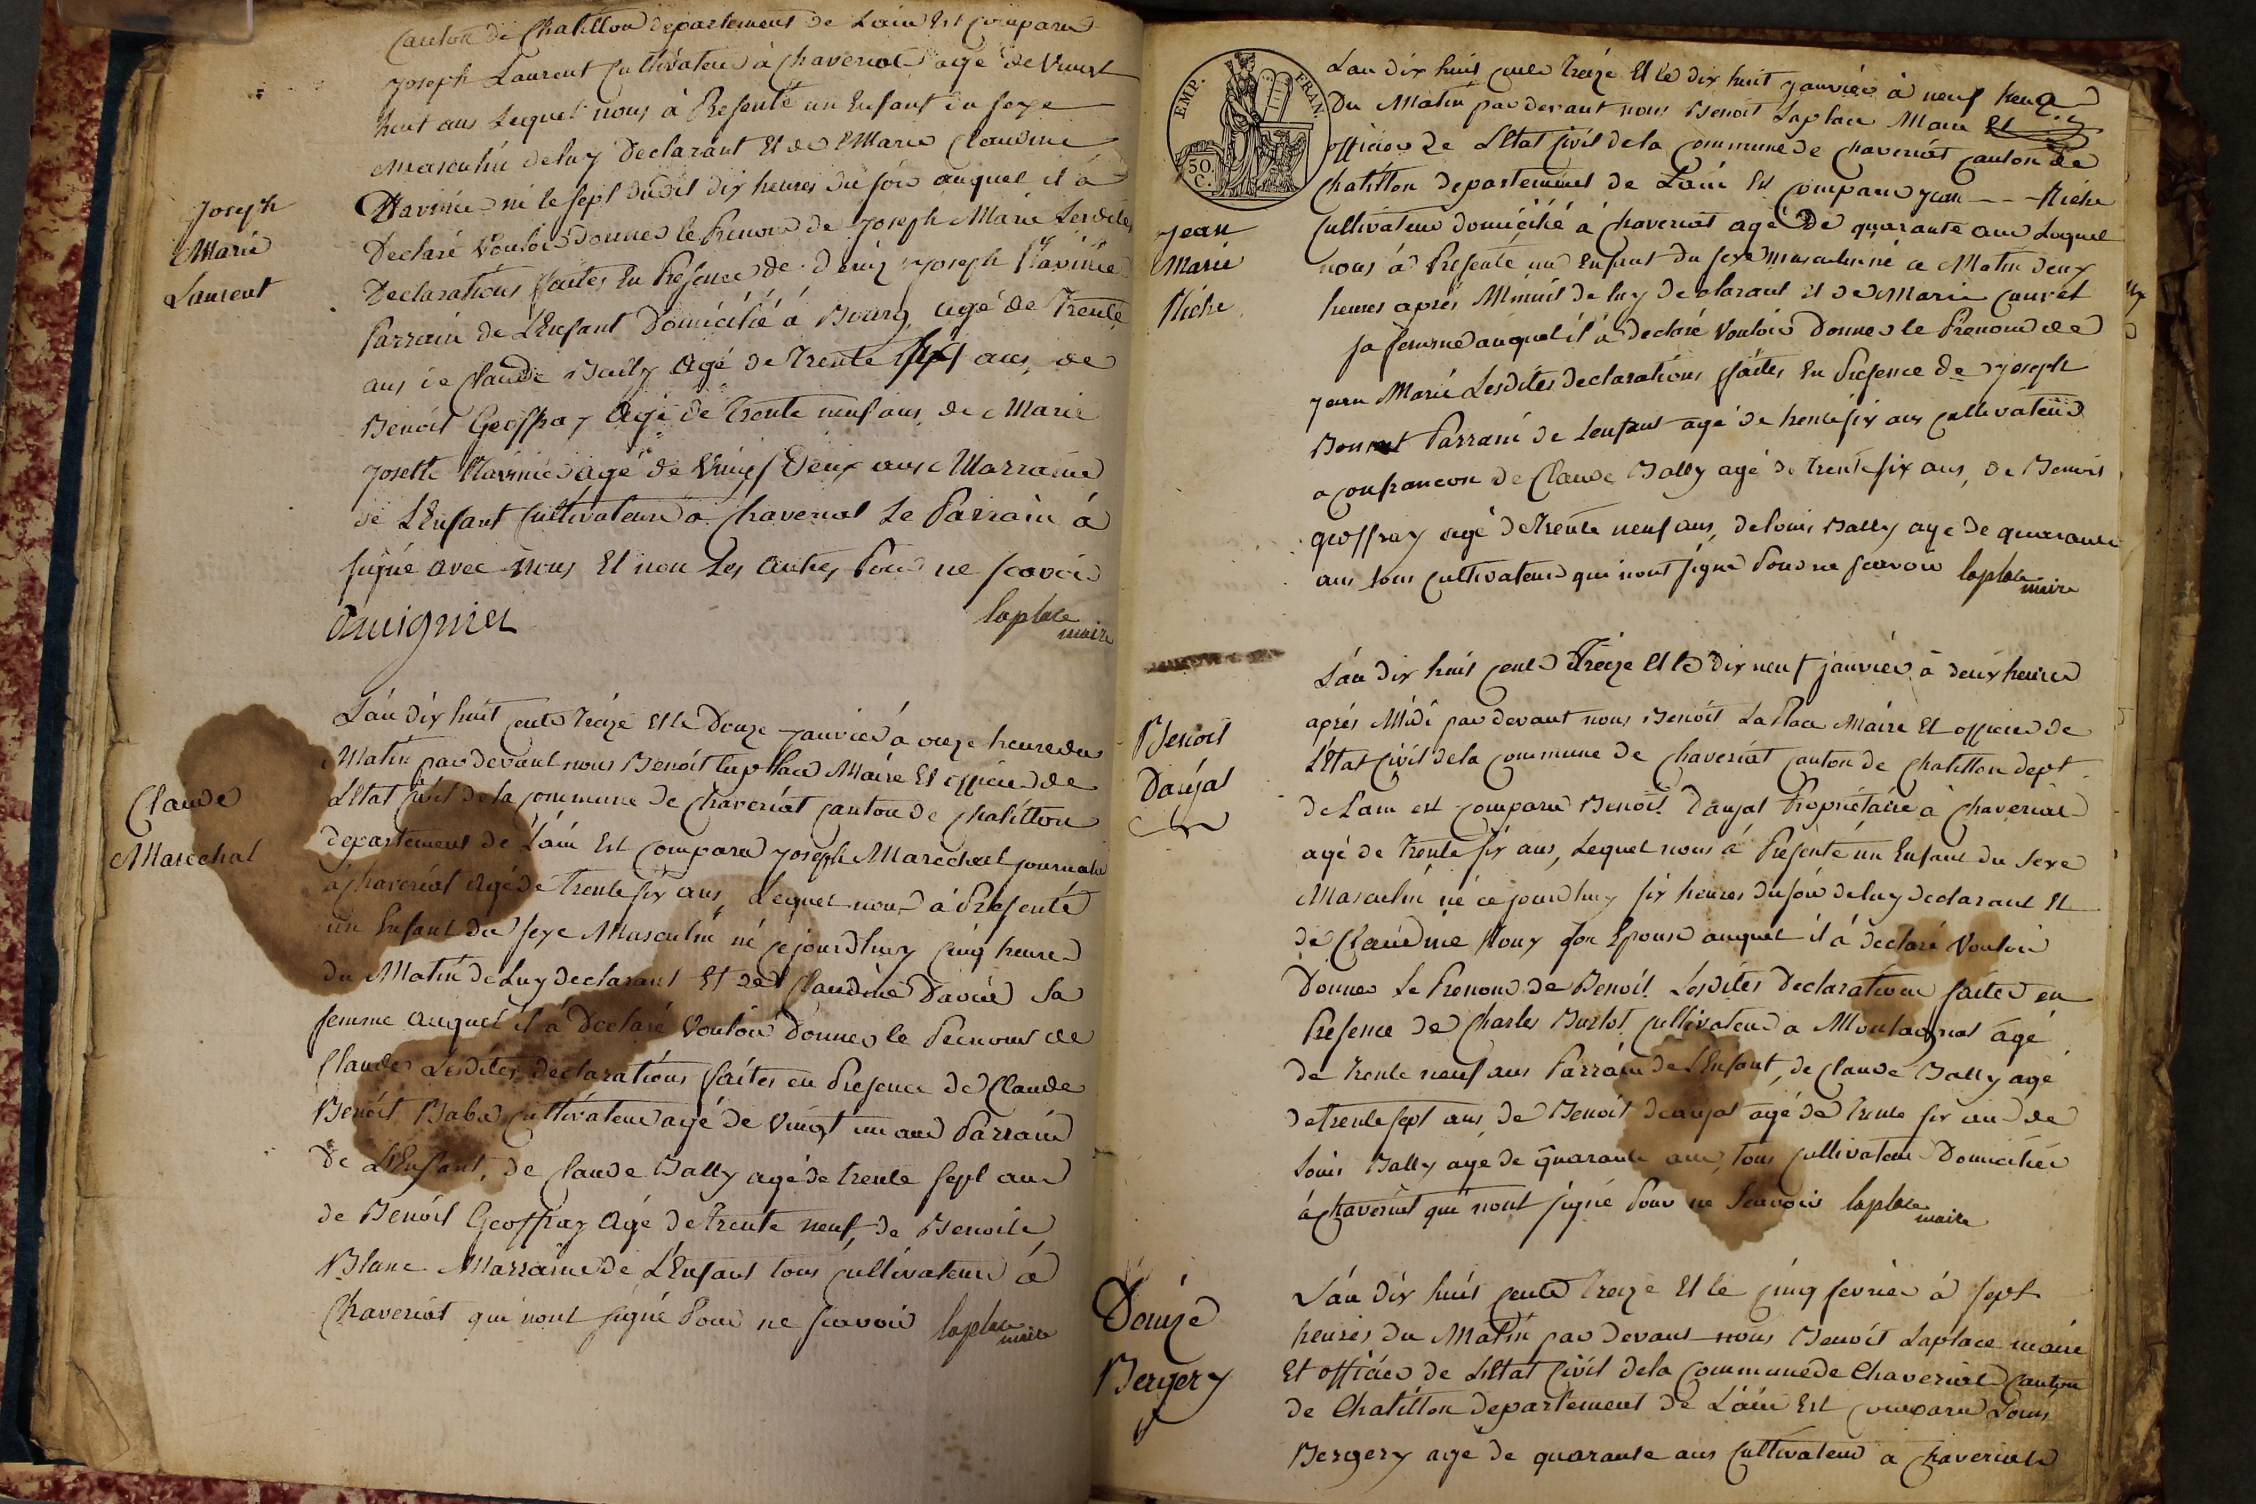 Canton de Chatillon departement de Lain Est Comparu
Joseph Laurent Cultivateur à Chaveriat agé de Vingt
huit ans Lequel nous à Presenté un Enfant du sexe
Masculin de luy Declarant Et de Marie Claudine
né le sept dudit dix heures du soir auquel il à
Declaré Vouloir donner le Prenom de Joseph Marie Lesdites
Declarations faites En Presence de Joseph
Parrain de L'Enfant Domicilié à Bourg agé de Trente
ans de Claude Bally agé de trente sept ans, de
Benoit Geoffray agé de trente neuf ans de Marie
Josette agé de Vingt Deux ans Marraine
de L'Enfant Cultivateurs a Chaveriat Le Parrain à
signé avec nous Et non Les autres Pour ne scavoir
laplace
maire
Joseph
Marie
Laurent
L'an dix huit cents treize Et le Douze janvier à onze heure du
Matin par devant nous Benoit Laplace Maire Et officier de
L'Etat Civil de la Commune de Chaveriat canton de Chatillon
departement de L'ain Est Comparu Joseph Marechal journalier
à Chaveriat agé de trente six ans, Lequel nous à Presenté
un Enfant du sexe Masculin né cejourdhuy cinq heures
du Matin de Luy declarant Et de Claudine sa
femme auquel il à Declaré Vouloir Donner le Prenom de
Claude Lesdites déclarations faites en Presence de Claude
Benoit Cultivateur agé de Vingt un ans Parrain
de L'Enfant, de Claude Bally agé de trente sept ans
de Benoit Geoffray agé de trente neuf, de Benoite
Blanc Marraine de L'Enfant tous cultivateurs à
Chaveriat qui n'ont signé Pour ne scavoir laplace
maire
Claude
Marechal
EMP. FRAN.
50
C.
Lan dix huit cents treize Et le dix huit janvier à neuf heures
Du Matin par devant nous Benoit Laplace Maire
officier de L'Etat Civil de la Commune de Chaveriat canton de
Chatillon departement de Lain Est Comparu Jean - - - Niche
Cultivateur domicilié à Chaveriat agé De quarante ans Lequel
nous à Presenté un Enfant du sexe masculin né ce Matin deux
heures après Minuit de luy declarant et de Marie
sa femme auquel il à declaré Vouloir Donner le Prenom de
Jean Marie Lesdites declarations faites En Presence de Joseph
Parrain de Lenfant agé de trente six ans cultivateur
a confrancon de Claude Bally agé de trente six ans, de Benoit
geoffray agé de trente neuf ans, de louis Bally agé de quarante
ans tous cultivateurs qui n'ont signé Pour ne scavoir laplace
maire
Jean
Marie
Niche
L'an dix huit cents Treize Et le dix neuf janvier à deux heures
après Midi par devant nous Benoit La Place Maire Et officier de
L'Etat Civil de la Commune de Chaveriat canton de Chatillon dept
de Lain est Comparu Benoit Daujat Propriétaire à Chaveriat
agé de trente six ans, Lequel nous à Presenté un Enfant du sexe
Masculin né ce jourdhuy six heures du soir de luy declarant Et
de Claudine son Epouse auquel il à declaré Vouloir
Donner Le Prenom de Benoit Lesdites Declarations faites en
Presence de Charles Burlot Cultivateur a Montagnat agé
de trente neuf ans Parrain de L'Enfant, de Claude Bally agé
de trente sept ans de Benoit agé de trente six ans de
Louis Bally agé de quarante ans, tous cultivateurs Domiciliés
à Chaveriat qui n'ont signé Pour ne Scavoir laplace
maire
Benoit
Daujat
L'an dix huit cents treize Et le cinq fevrier à sept
heures du Matin par devant nous Benoit Laplace maire
Et officier de L'Etat Civil de la Commune de Chaveriat Canton
de Chatillon departement de L'ain Est comparu Louis
Bergery agé de quarante ans Cultivateur a Chaveriat
Denize
Bergery